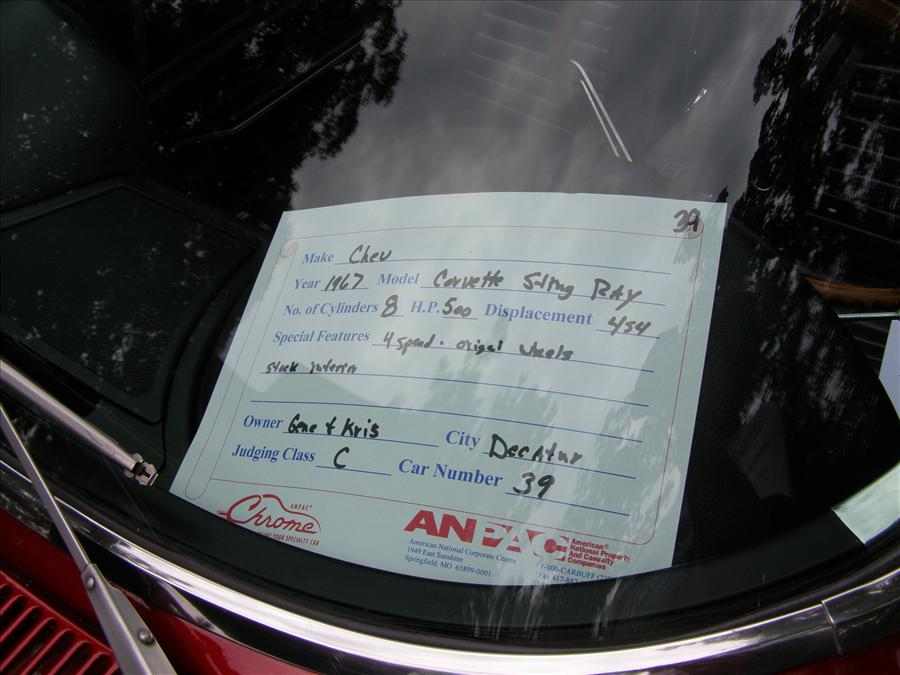 39
Make Chev
Year 1967 Model Corvette Sting RAy
No. of Cylinders 8 H.P. 500 Displacement 454
Special Features 4 speed · origal wheels
stock interior
Owner Gene & Kris City Decatur
Judging Class C Car Number 39
ANPAC
Chrome
YOUR SPECIALTY CAR
ANPAC
American National Property And Casualty Companies
American National Corporate Centre
1949 East Sunshine
Springfield, MO 65899-0001
1-800-CARBUFF
Fax 417-887